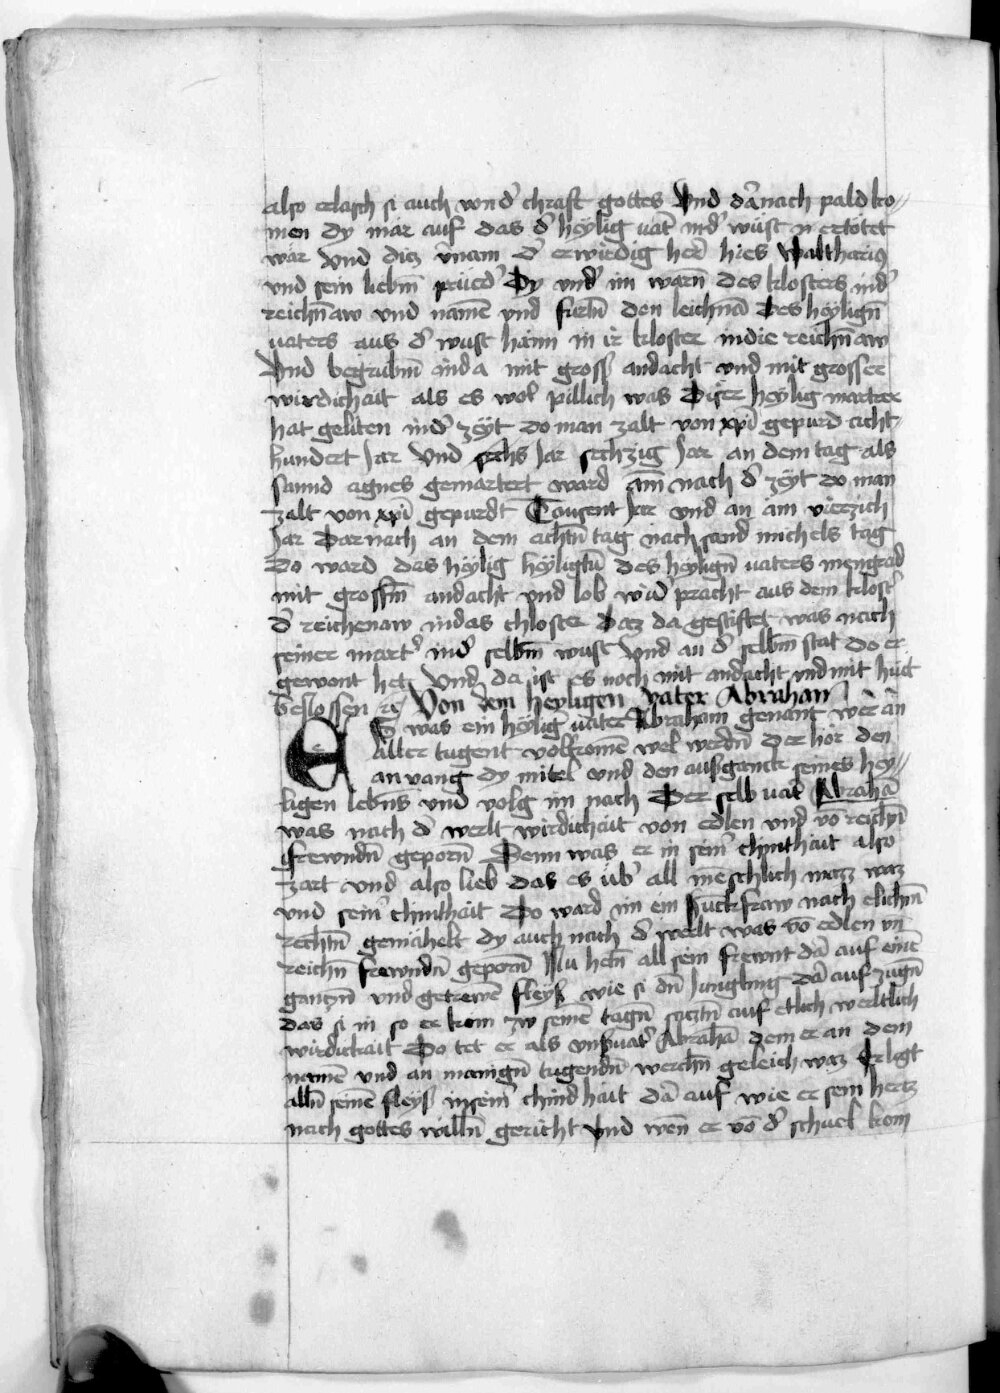 also erlasch si auch von d̾ chraft gottes Vnd dar̄nach pald ko⸗
men dy mär auf das d̾ heylig vat̾ in d̾ wüst n ertötet
wär Vnd dicz v̾nam d̾ erwirdig her̾ hies Waltharius
vnd sein liebm̄ prüed̾ Dy vnd̾ im warn̄ des klosters in d̾
reichn̄aw vnd namē vnd furtn̄ den leichnā Des heylign̄
vaters aus d̾ wust haim in ir kloster in die reichn̄aw
Vnd begrubm̄ in da mit gross̾ andacht vnd mit grosser
wirdichait als es wol pillich was Diser heylig martrer
hat geliten in d̾ zeyt do man zalt von xp̄i gepurd acht
hundert Jar Vnd sechs Jar sechzig Jar an dem tag als
sannd agnes gemartert ward Am̄ nach d̾ zeyt do man
zalt von xp̄i gepurdt Tausent Jar vnd an ain vierzich
Jar Darnach an dem achtn̄ tag nach sand michels tag
Do ward das heylig heyligtū des heylign̄ vaters mengrad
mit grossm̄ andacht vnd lob wid̾ pracht aus dem klost̾
d̾ reichenaw in das chloster Daz da gestiftet was nach
seiner mart̾ in d̾ selbm̄ wust Vnd an d̾ selbm̄ stat do er
gewont het Vnd da ist es noch mit andacht vnd mit hüet
beslossen ꝛc Von dem heyligen vater Abraham
Es was ein heylig̾ vater Abraham genant wer an
aller tugent volkomē wel werdn̄ Der hor den
an vang dy mitel vnd den ausganck seines hey⸗
ligen lebn̄s vnd volg im nach Der selb vat̾ Abrahā
was nach d̾ werlt wirdichait von edlen vnd vō reichn̄
frewndn̄ geporn̄ Denn was er in sein̾ chinthait also
zart vnd also lieb das es üb̾ all menschlich mazz waz
vnd sein̾ chinthait Do ward im ein Junckfraw nach elichn̄
rechtn̄ gemähelt dy auch nach d̾ werlt was vō edlen vn̄
reichn̄ frewndn̄ geporn̄ Nu hetn̄ all sein frewnt dar̄ auf einē
ganczn̄ vnd getrewē fleyß wie si dn̄ Jungling dar̄ auf zugn̄
das si in so er kom zw seinē tagn̄ saczn̄ auf etlich werltlich
wirdichait Do tet er als vnß̾ vat̾ Abrahā dem er an dem
namē vnd an manign̄ tugendn̄ werchn̄ geleich waz Er legt
alln̄ seinē fleyß in sein̾ chindhait dar̄ auf wie er sein hertz
nach gottes willn̄ gericht vnd wen̄ er vō d̾ schuel kom